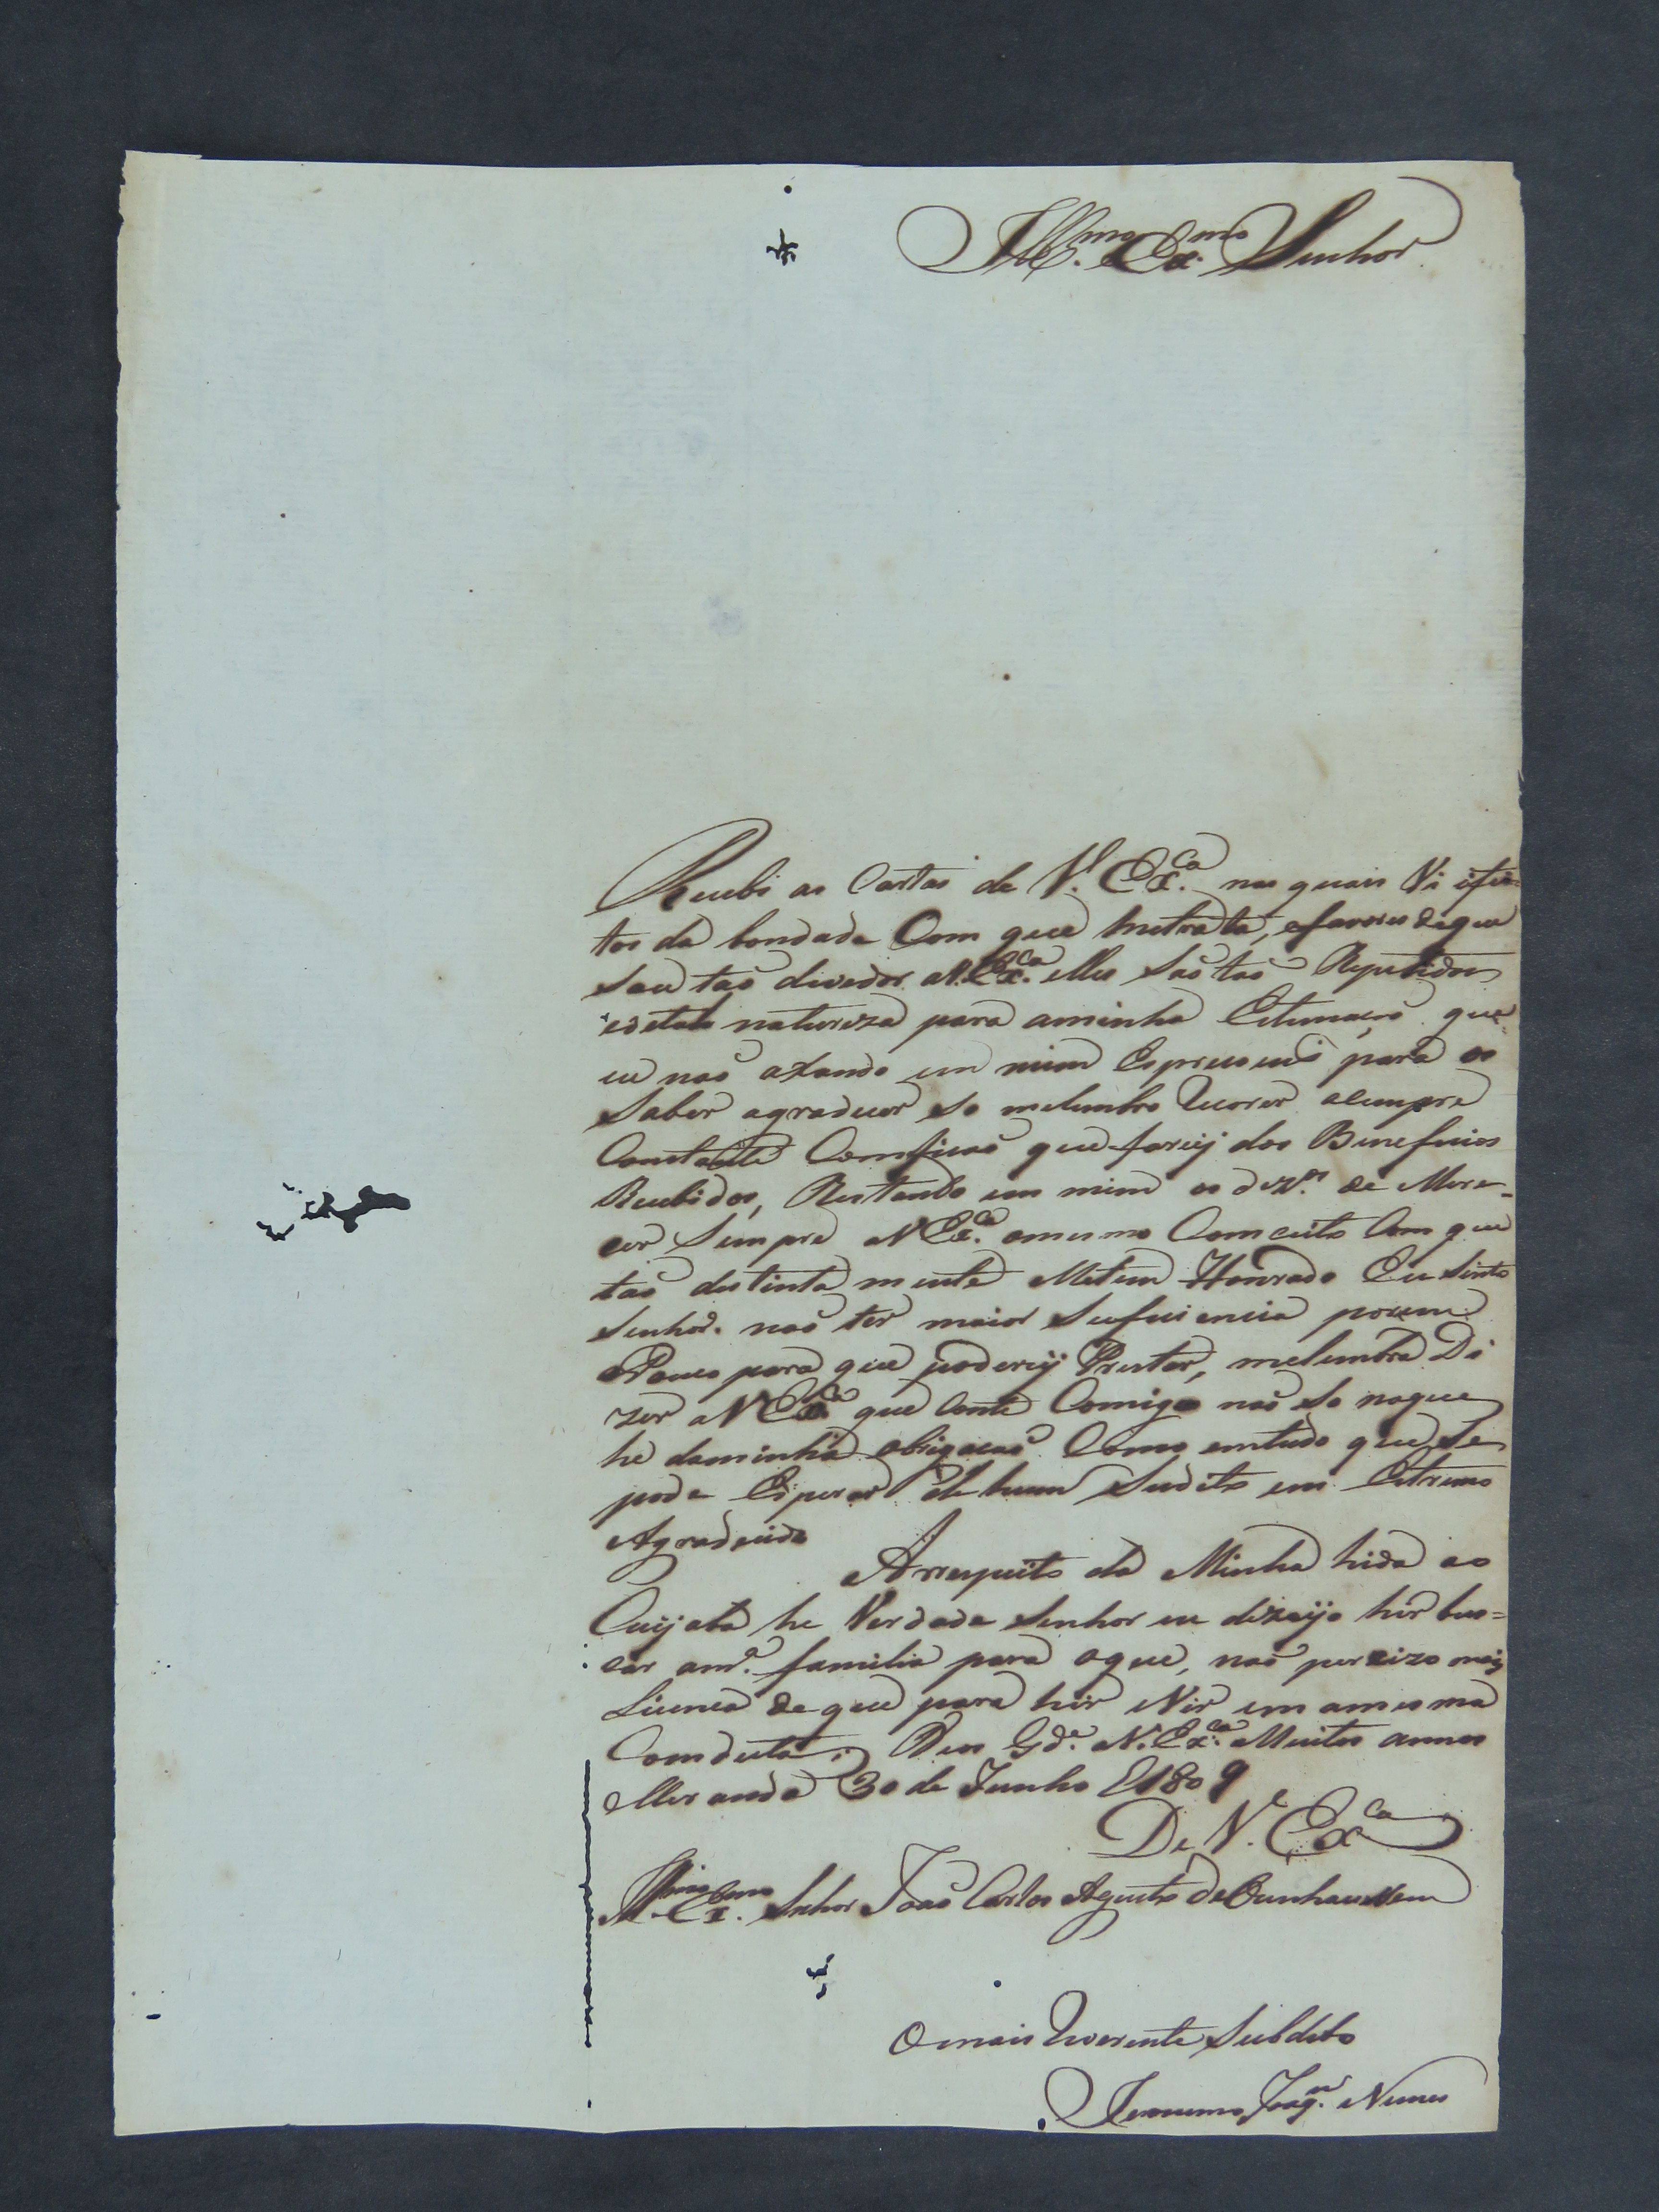 Ill.mo Ex.mo Senhor
Recebi as Cartas de V. Ex.ca nas quais Vi ifei-
tos da bondade Com que metrata, efavores deque
sou taõ divedor aV.Ex.ca elles saõ taõ Repetidos
edetal natureza para aminha Estimaçaõ que
eu naõ axando em mim Espreçoens para os
saber agradecer so melembro recorer aCempre
Constante Comficaõ que farej dos Beneficios
Recebidos, Restando em mim os dez.os de Mere-
cer Sempre aV Ex.ca omesmo Comceito Com que
taõ destinta mente Metem Honrado Eu sinto
Senhor. naõ ter maior Suficiencia porem
oPouco para que poderej Prestar, melembra Di
zer aV Ex.ca que Conte Comigo naõ so noque
he daminha obrigacaõ Como emtudo que se
pode Esperar de hum Sudito em Estremo
Agradecido
Arrespeito da Minha hida ao
Cuyaba he Verdade Senhor eu dezeijo hir bus=
car am.a familia para oque, naõ percizo mais
Licença do que para hir eVir em amesma
Comduta; Deos G.de aV. Ex.ca Muitos annos
Miranda 30 de Junho de 1809
De V. Ex.ca
Ill.mo Ex.mo Senhor Joaõ Carlos Agusto de Oeunhaussem
O mais reverente Subdito
Jeronimo Joaq.m Nunes